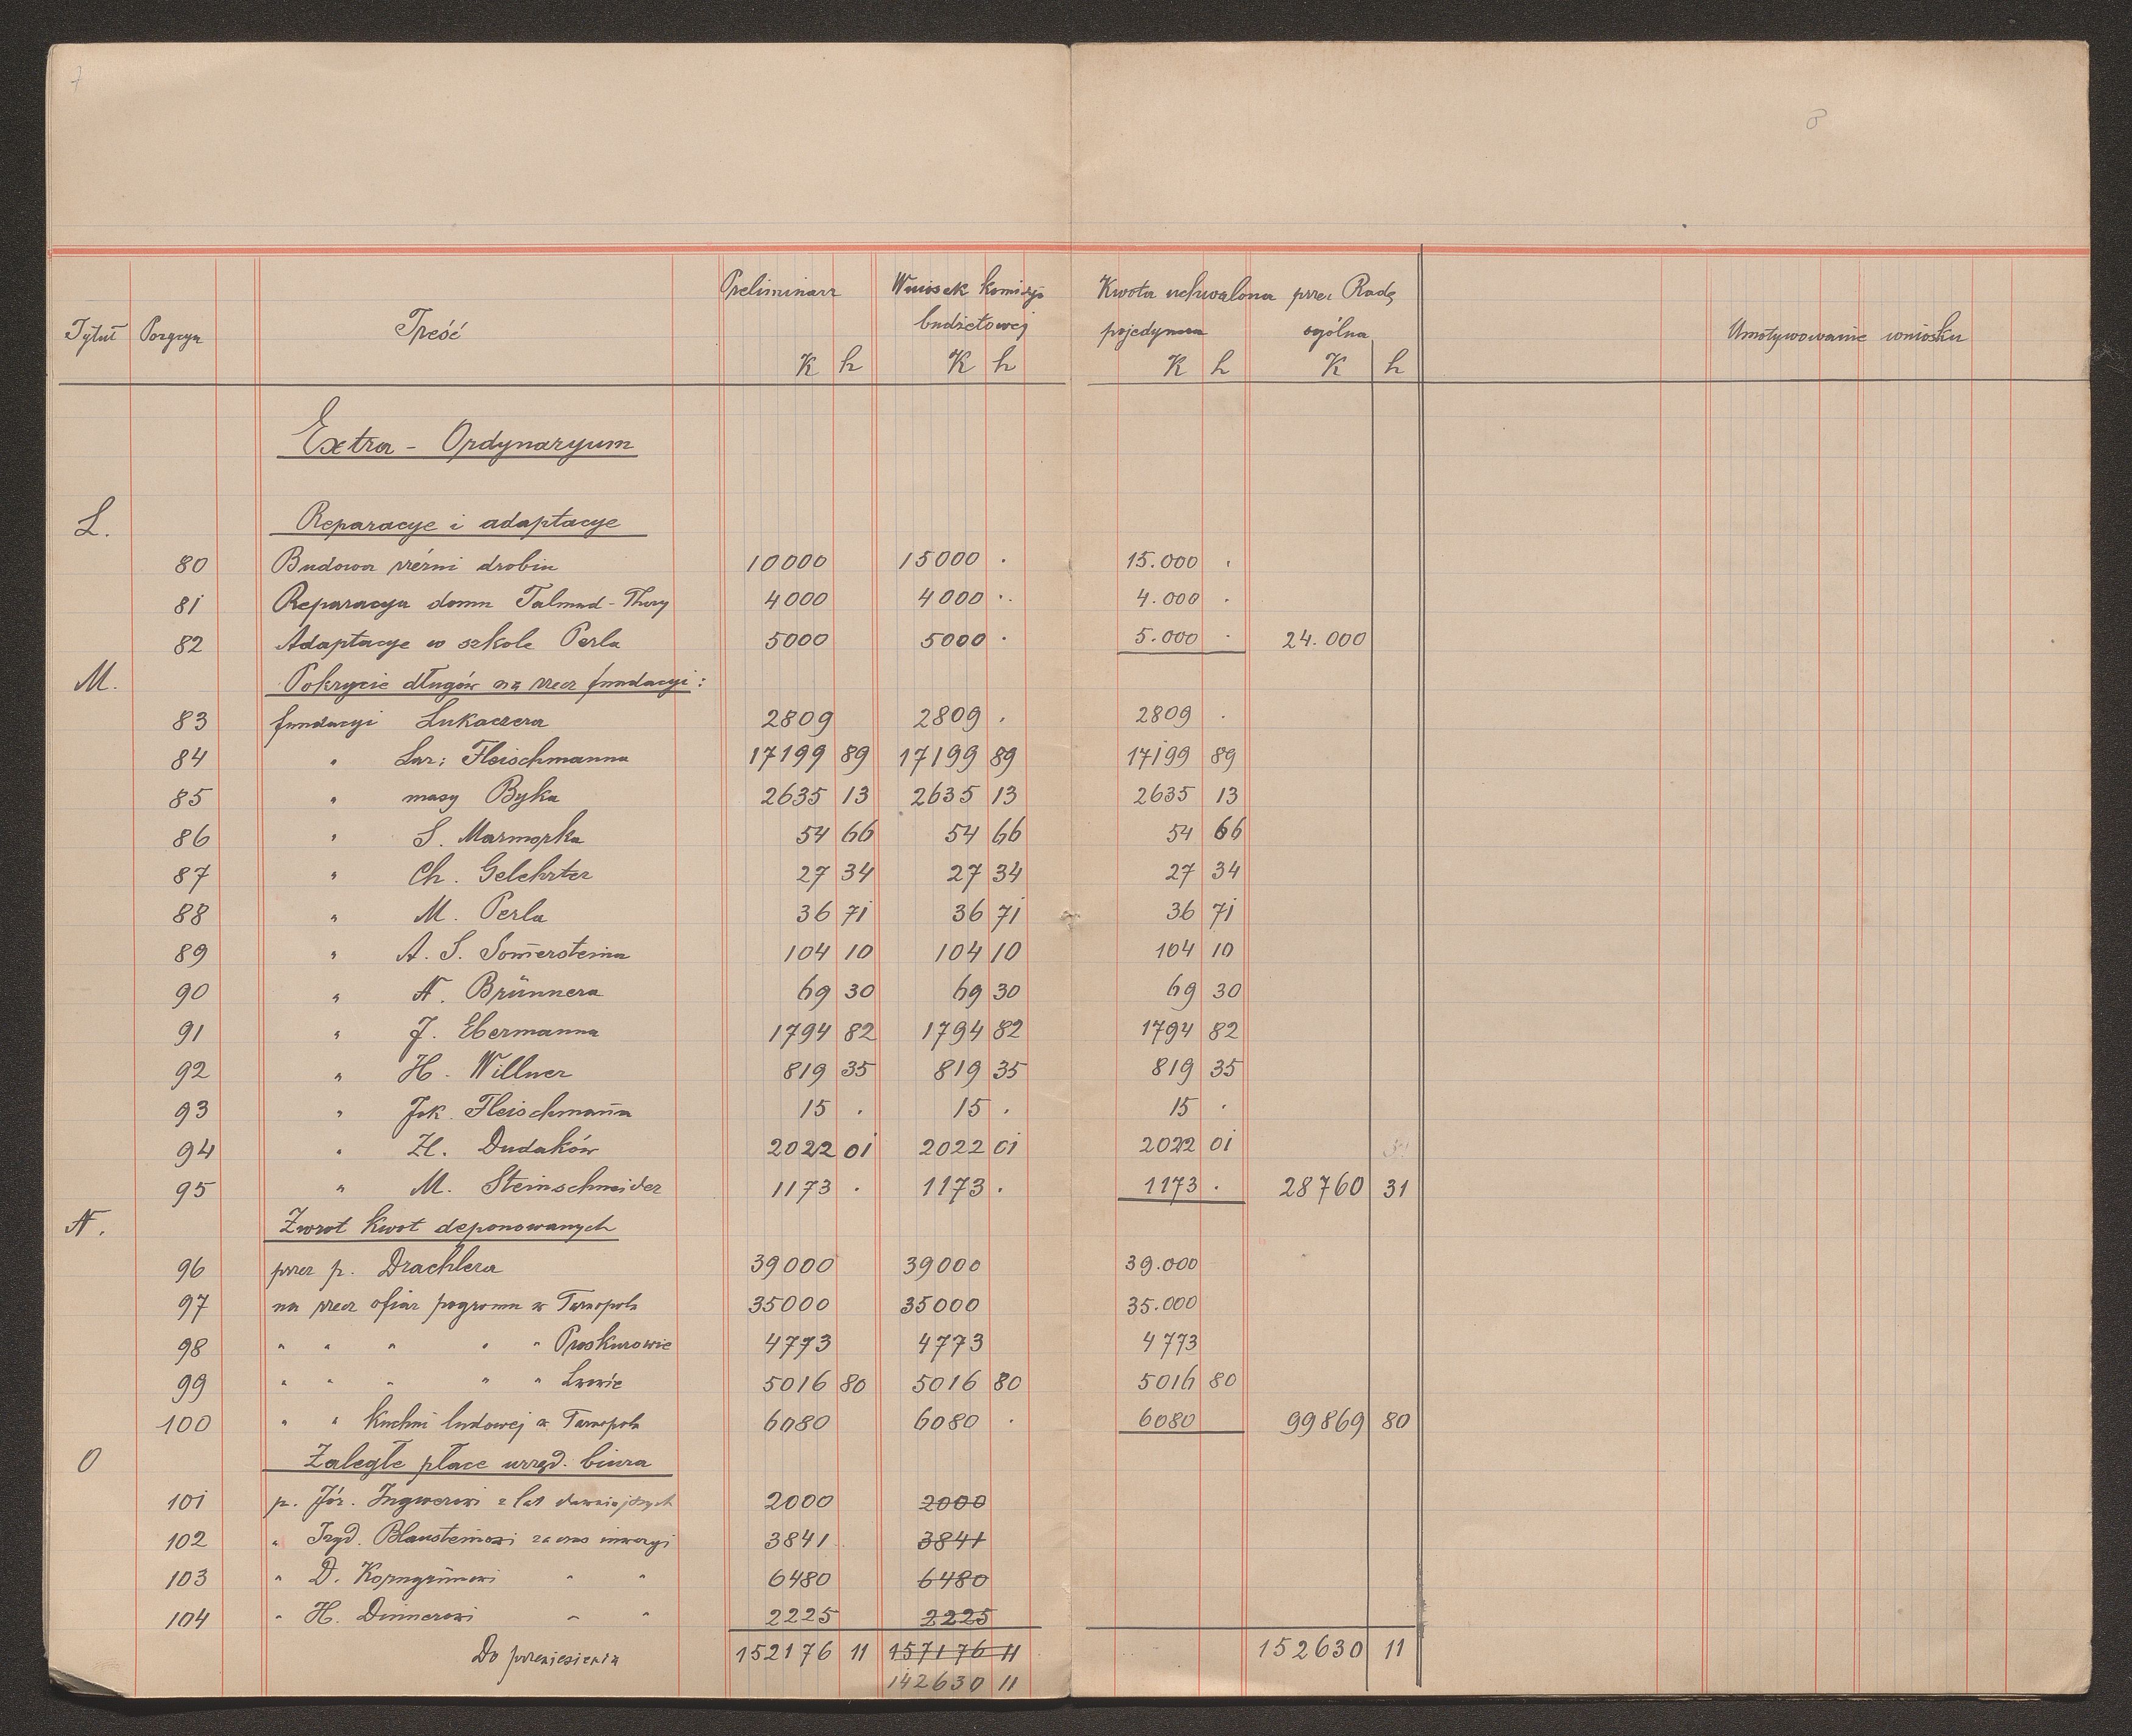 7
8
Preliminarz Wniosek komisyi Kwota uchwalona przez Radę
Tytuł Pozycya Treść budżetowej pojedyncza ogólna Umotywowanie wniosku
K h K h K h K h
Extra - Ordynaryum
L. Reparacye i adaptacye
80 Budowa rzeźni drobiu 10000 15000 . 15.000 .
81 Reparacya domu Talmud - Thory 4000 4000 . 4.000 .
82 Adaptacye w szkole Perla 5000 5000 . 5.000 . 24.000
M. Pokrycie długów na rzecz fundacyi :
83 fundacyi Lukaczera 2809 2809 . 2809 .
84 " Laz: Fleischmanna 17199 89 17199 89 17199 89
85 " masy Byka 2635 13 2635 13 2635 13
86 " S. Marmorka 54 66 54 66 54 66
87 " Ch. Gelehrter 27 34 27 34 27 34
88 " M. Perla 36 71 36 71 36 71
89 " A. S. Som̄ersteina 104 10 104 10 104 10
90 " N. Brünnera 69 30 69 30 69 30
91 " J. Ebermanna 1794 82 1794 82 1794 82
92 " H. Willner 819 35 819 35 819 35
93 " Jak. Fleischman̄a 15 . 15 . 15 .
94 " H. Dudaków 2022 01 2022 01 2022 01
95 " M. Steinschneider 1173 . 1173 . 1173 . 28760 31
N. Zwrot kwot deponowanych
96 przez p. Drachlera 39000 39000 39.000
97 na rzecz ofiar pogromu w Tarnopolu 35000 35000 35.000
98 " " " " " Proskurowie 4773 4773 4773
99 " " " " " Lwowie 5016 80 5016 80 5016 80
100 " " Kuchni ludowej w Tarnopolu 6080 6080 . 6080 99869 80
O Zaległe płace urzęd. biura
101 p. Józ. Ingwerowi z lat dawniejszych 2000 2000
102 " Izyd. Blausteinowi za czas inwazyi 3841 3841
103 " D. Korngrünowi " " 6480 6480
104 " H. Dinnerowi " " 2225 2225
Do przeniesienia 152176 11 157176 11 152630 11
142630 11